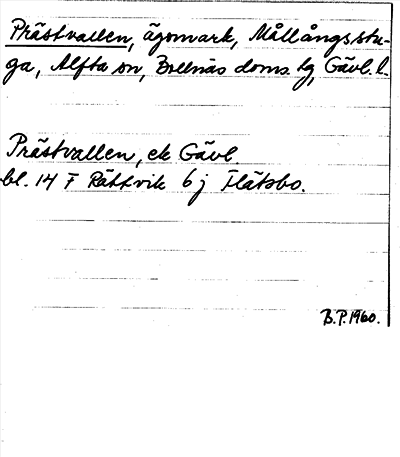 Prästvallen, ägomark, Mållångsstu-
ga, Alfta sn, Bollnäs doms. lg, Gävl. l.
Prästvallen, ek Gävl.
bl. 14 F Rättvik 6 j Flätsbo.
B.P. 1960.